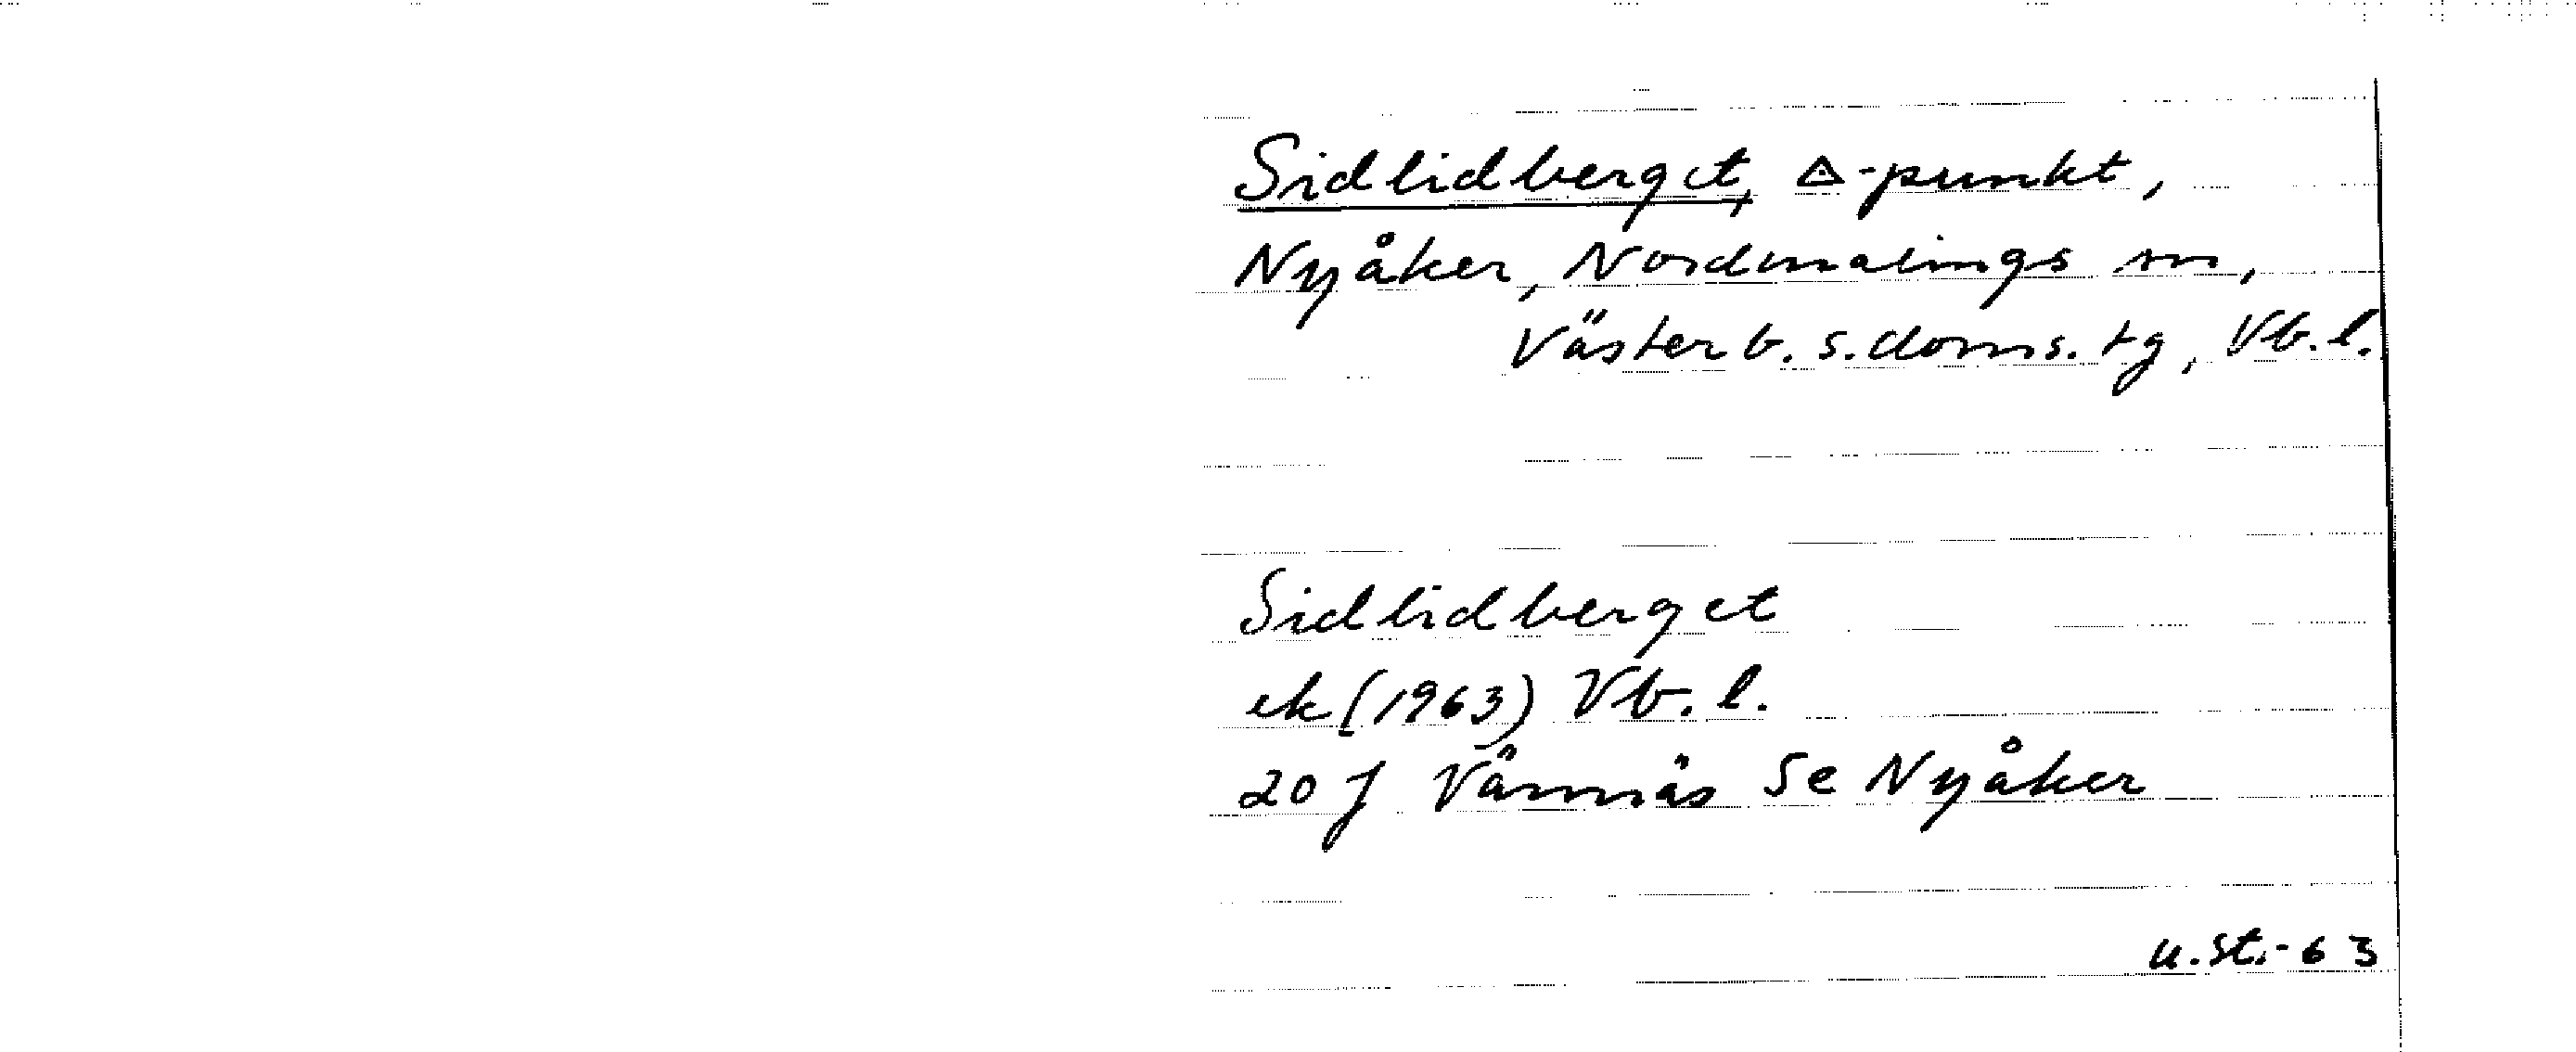 Sidlidberget, △-punkt,
Nyåker, Nordmalings sn,
Västerb. s. doms. tg, Vb. l.
Sidlidberget
ek (1963) Vb. l.
20 J Vännäs Se Nyåker
u. st. - 63